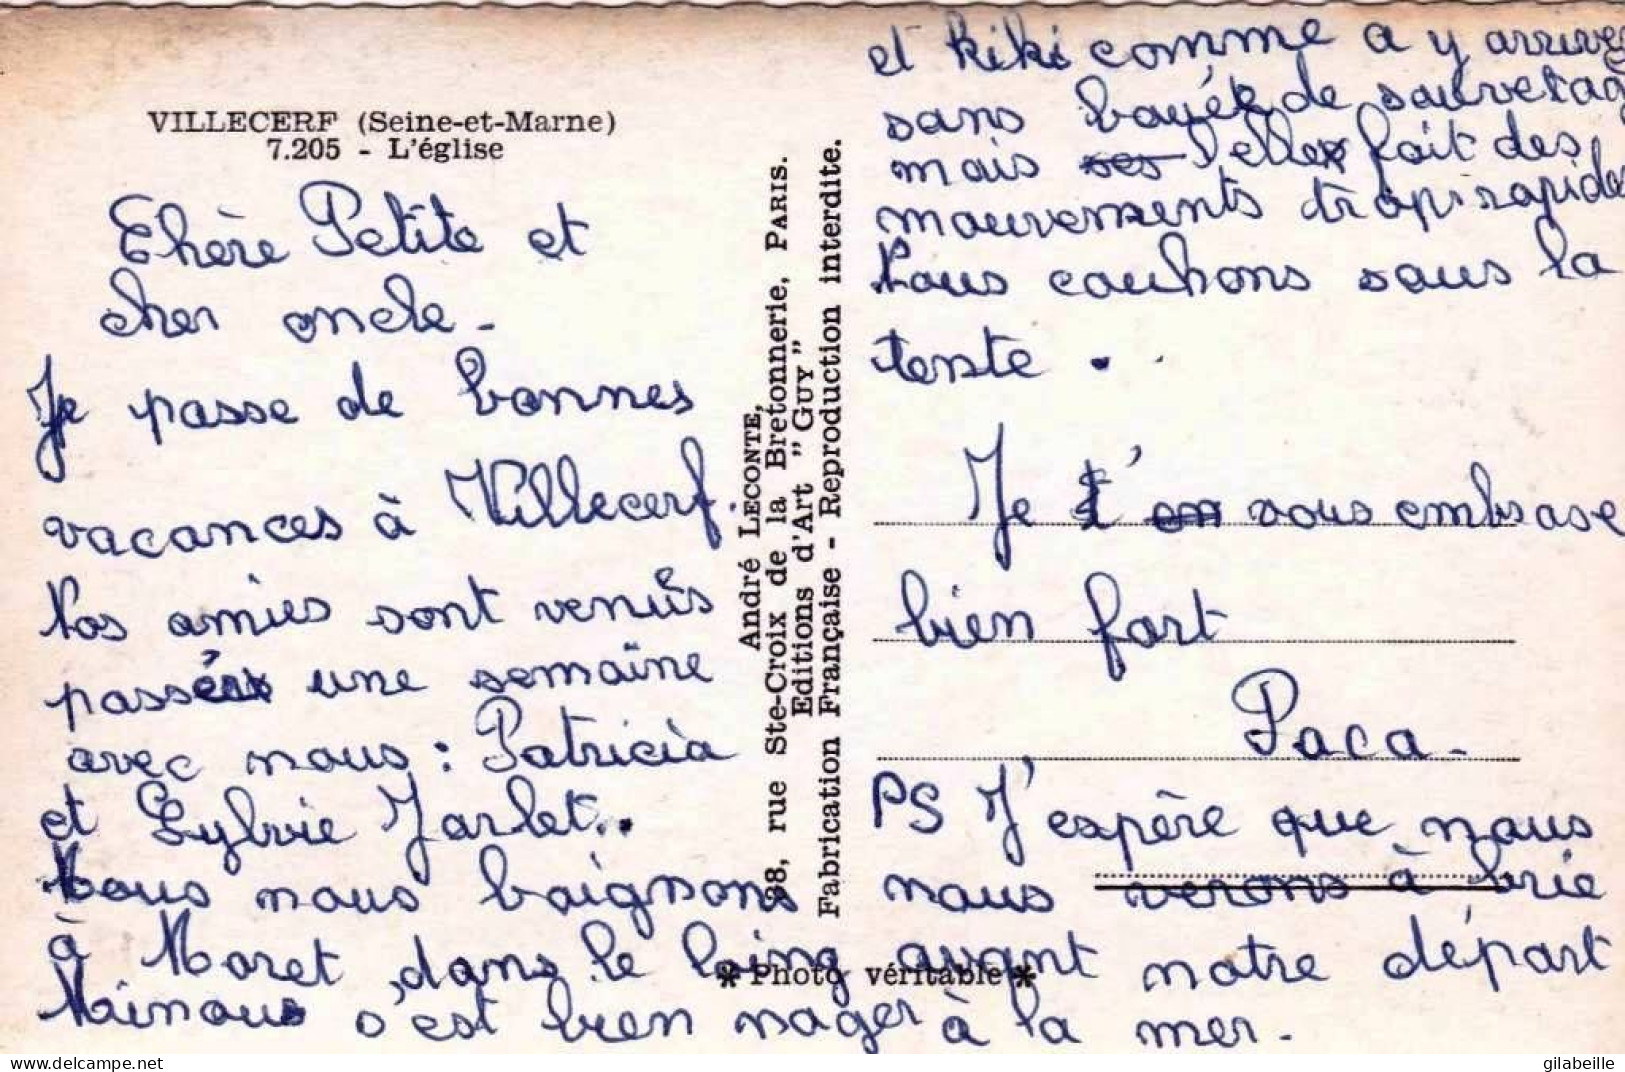 VILLECERF (Seine-et-Marne)
7.205 - L'église
Chère Petite et
cher oncle -
Je passe de bonnes
vacances à Villecerf.
Nos amies sont venus
passer une semaine
avec nous : Patricia
et Sylvie Jarlet..
Nous nous baignons
à Moret, dans le loing
Minous s'est bien nager
et kiki comme a y arriver
sans bouée de sauvetag
mais elle fait des
mouvements trop rapides
Nous couhons sous la
tente .
Je vous embrase
bien fort
Paca -
PS J'espère que nous
nous verons à brie
avant notre départ
à la mer -
André LECONTE,
38, rue Ste-Croix de la Bretonnerie, PARIS.
Editions d'Art "GUY"
Fabrication Française - Reproduction interdite.
* Photo véritable *
gilabeille